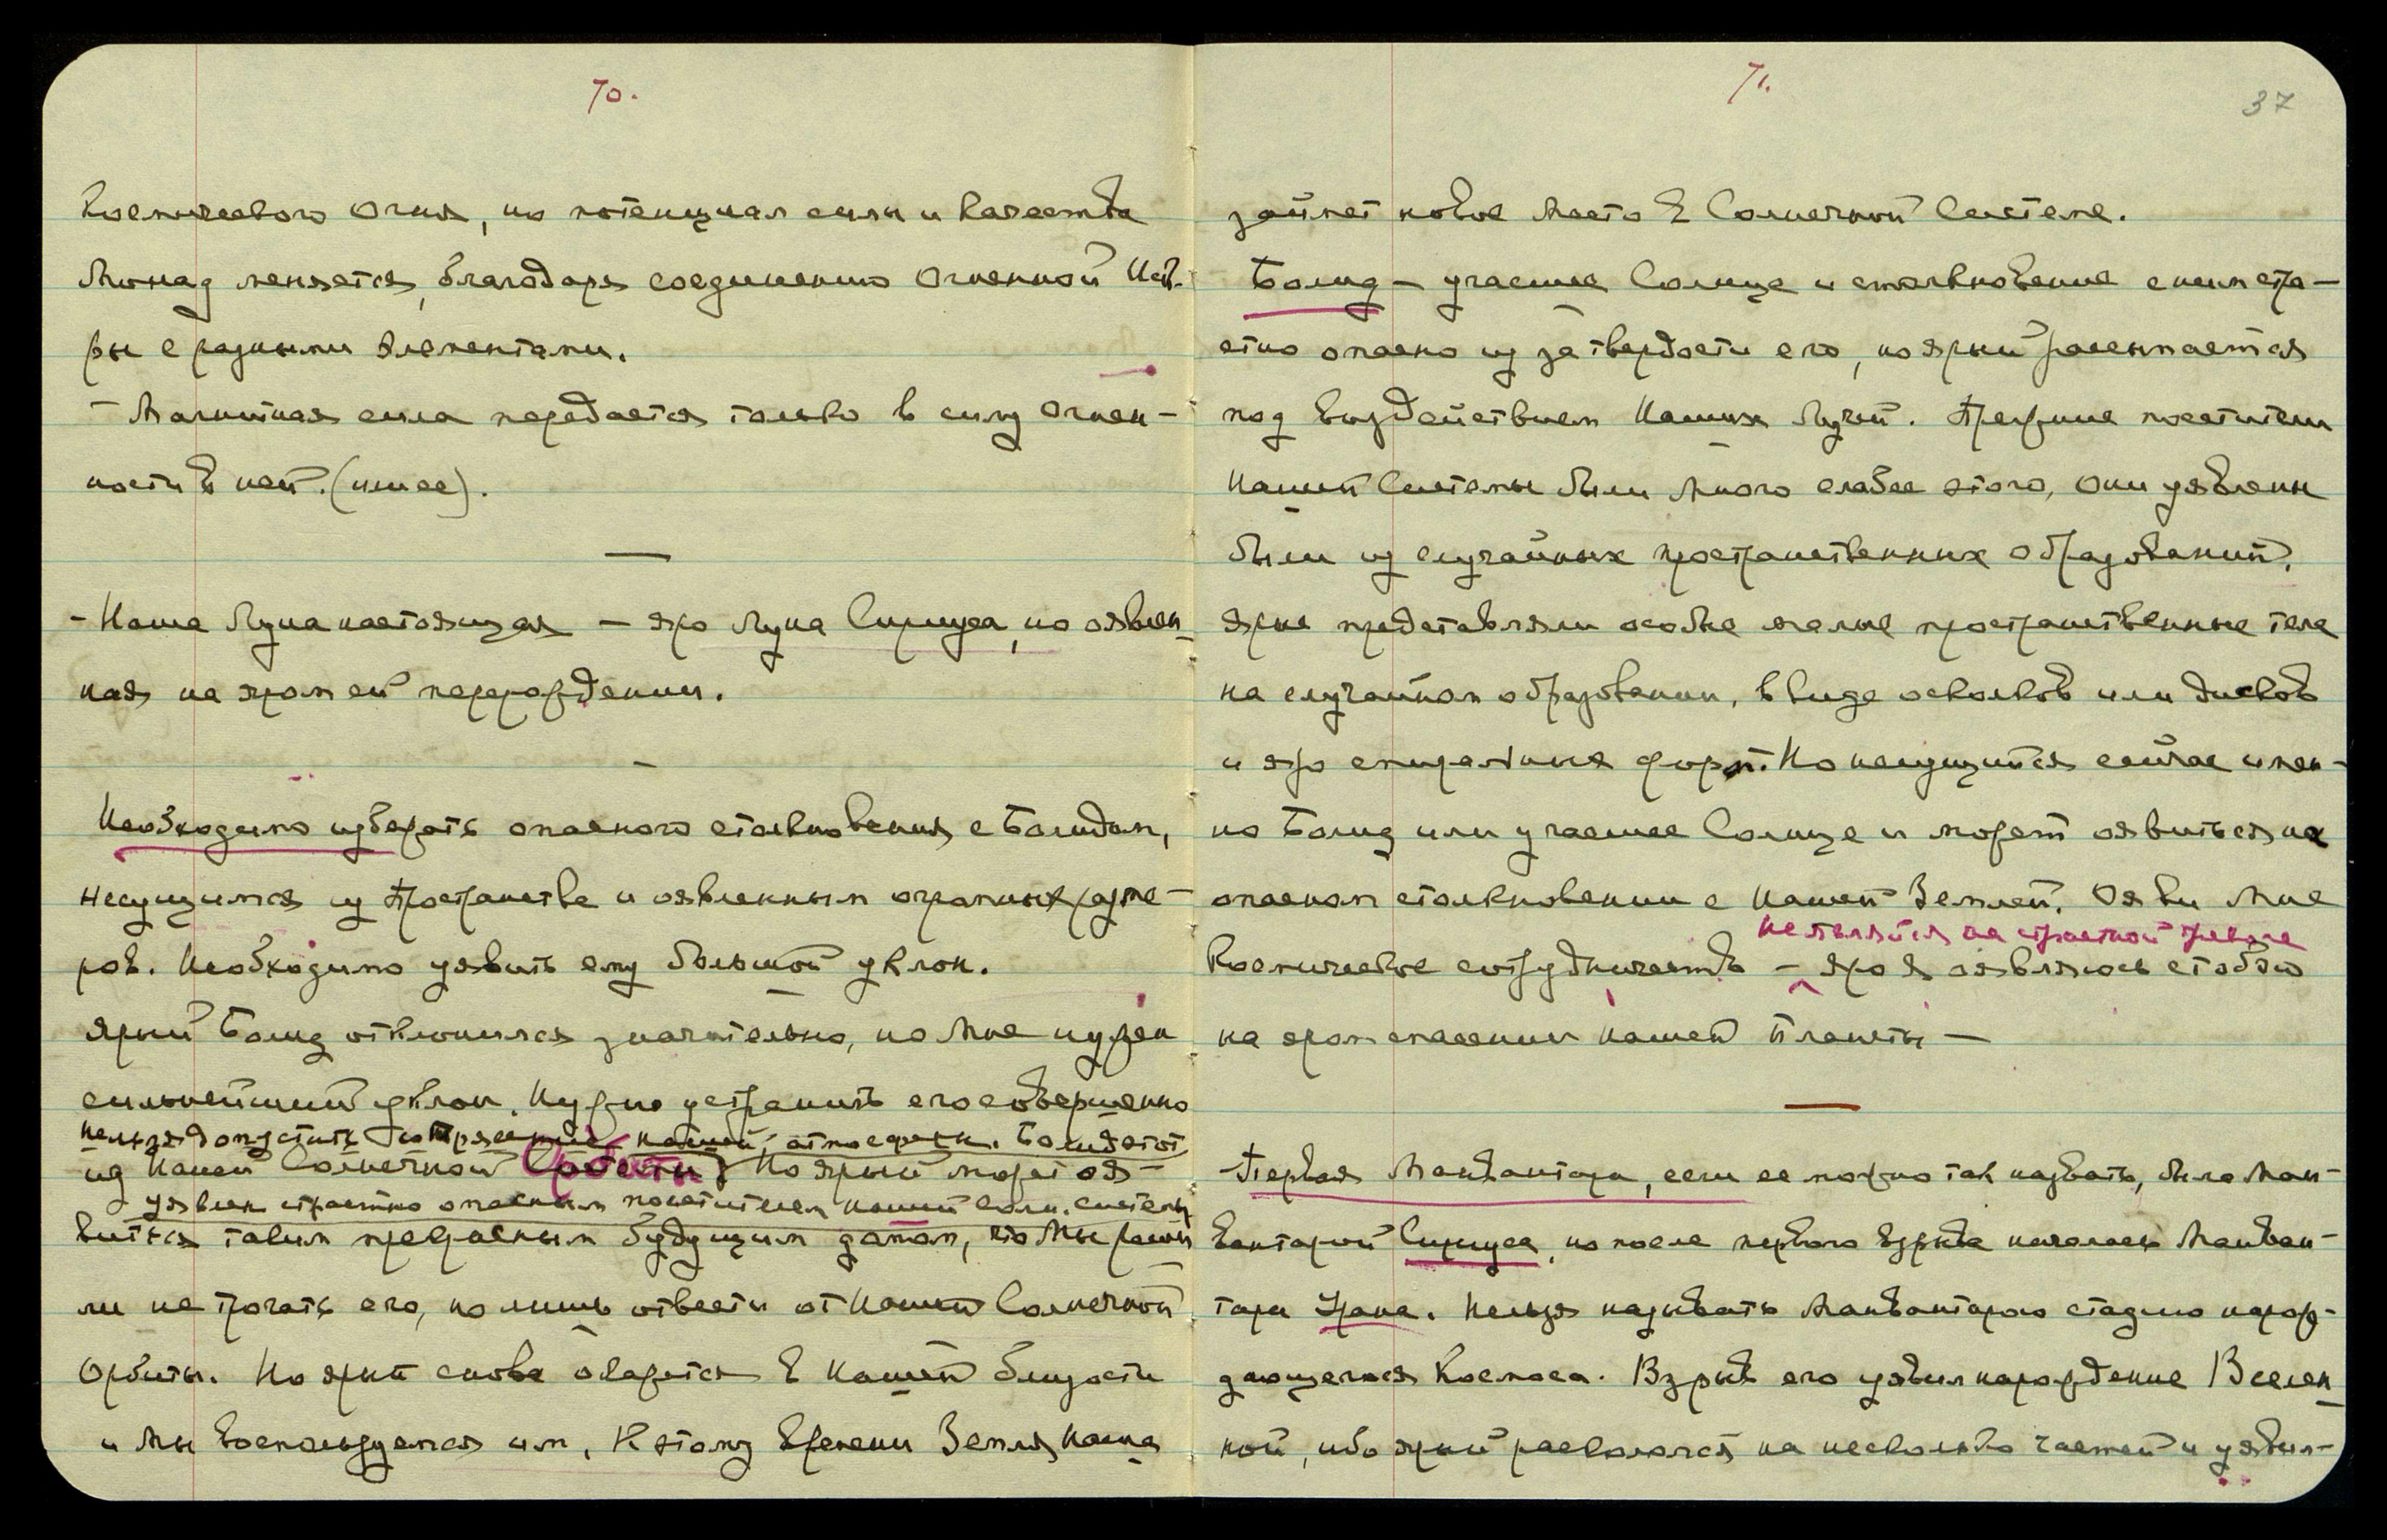 70.
Космического Огня, но потенциал силы и качества
Монад меняется, благодаря соединению Огненной Иск-
ры с разными элементами.
– Магнитная сила передается только в силу Огнен-
ности в ней. (ниже).
– Наша Луна настоящая – яро Луна Сириуса, но оявлен-
ная на яром ей перерождении.
Необходимо избежать опасного столкновения с Болидом,
несущимся из Пространства и оявленным огромных разме-
ров. Необходимо уявить ему большой уклон.
Ярый Болид отклонился значительно, но Мне нужен
сильнейший уклон. Нужно устранить его совершенно
нельзя допустить сотрясение нашей атмосферы. Болид этот
из Нашей Солнечной Орбиты. Но ярый может оя-
уявлен страстно опасным посетителем нашей солн. системы
виться таким прекрасным будущим даром, что Мы реши-
ли не трогать его, но лишь отвести от Нашей Солнечной
Орбиты. Но ярый снова окажется в Нашей близости
и Мы воспользуемся им, К этому времени Земля Наша
71.
37
займет новое место в Солнечной Системе.
Болид – угасшее Солнце и столкновение с ним стра-
стно опасно из за твердости его, но ярый рассыпается
под воздействием Наших Лучей. Прежние посетители
Нашей Системы были много слабее этого, они уявлены
были из случайных пространственных образований.
Ярые представляли особые малые пространственные тела
на случайном образовании, в виде осколков или дисков
и яро спиральных форм. Но несущийся сейчас имен-
но Болид или угасшее Солнце и может оявиться на
опасном столкновении с Нашей Землей. Ояви Мне
не являйся на страстной тревоге
Космическое сотрудничество – яро Я оявляюсь с тобою
на яром спасении нашей Планеты –
– Первая Манвантара, если ее можно так назвать, была Ман-
вантарой Сириуса, но после первого взрыва началась Манван-
тара Урана. Нельзя называть Манвантарою стадию нарож-
дающегося Космоса. Взрыв его уявил нарождение Вселен-
ной, ибо ярый раскололся на несколько частей и уявил-